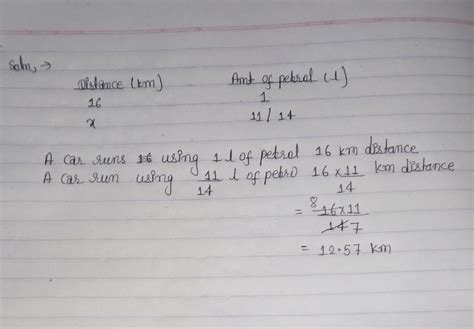 Soln, →
Distance (km) Amt of petrol (l)
16 1
x 11/14
A car runs 16 using 1 l of petrol 16 km distance
A car run using 11/14 l of petro 16 x 11/14 km distance
= 8 16x11/14 7
= 12.57 km